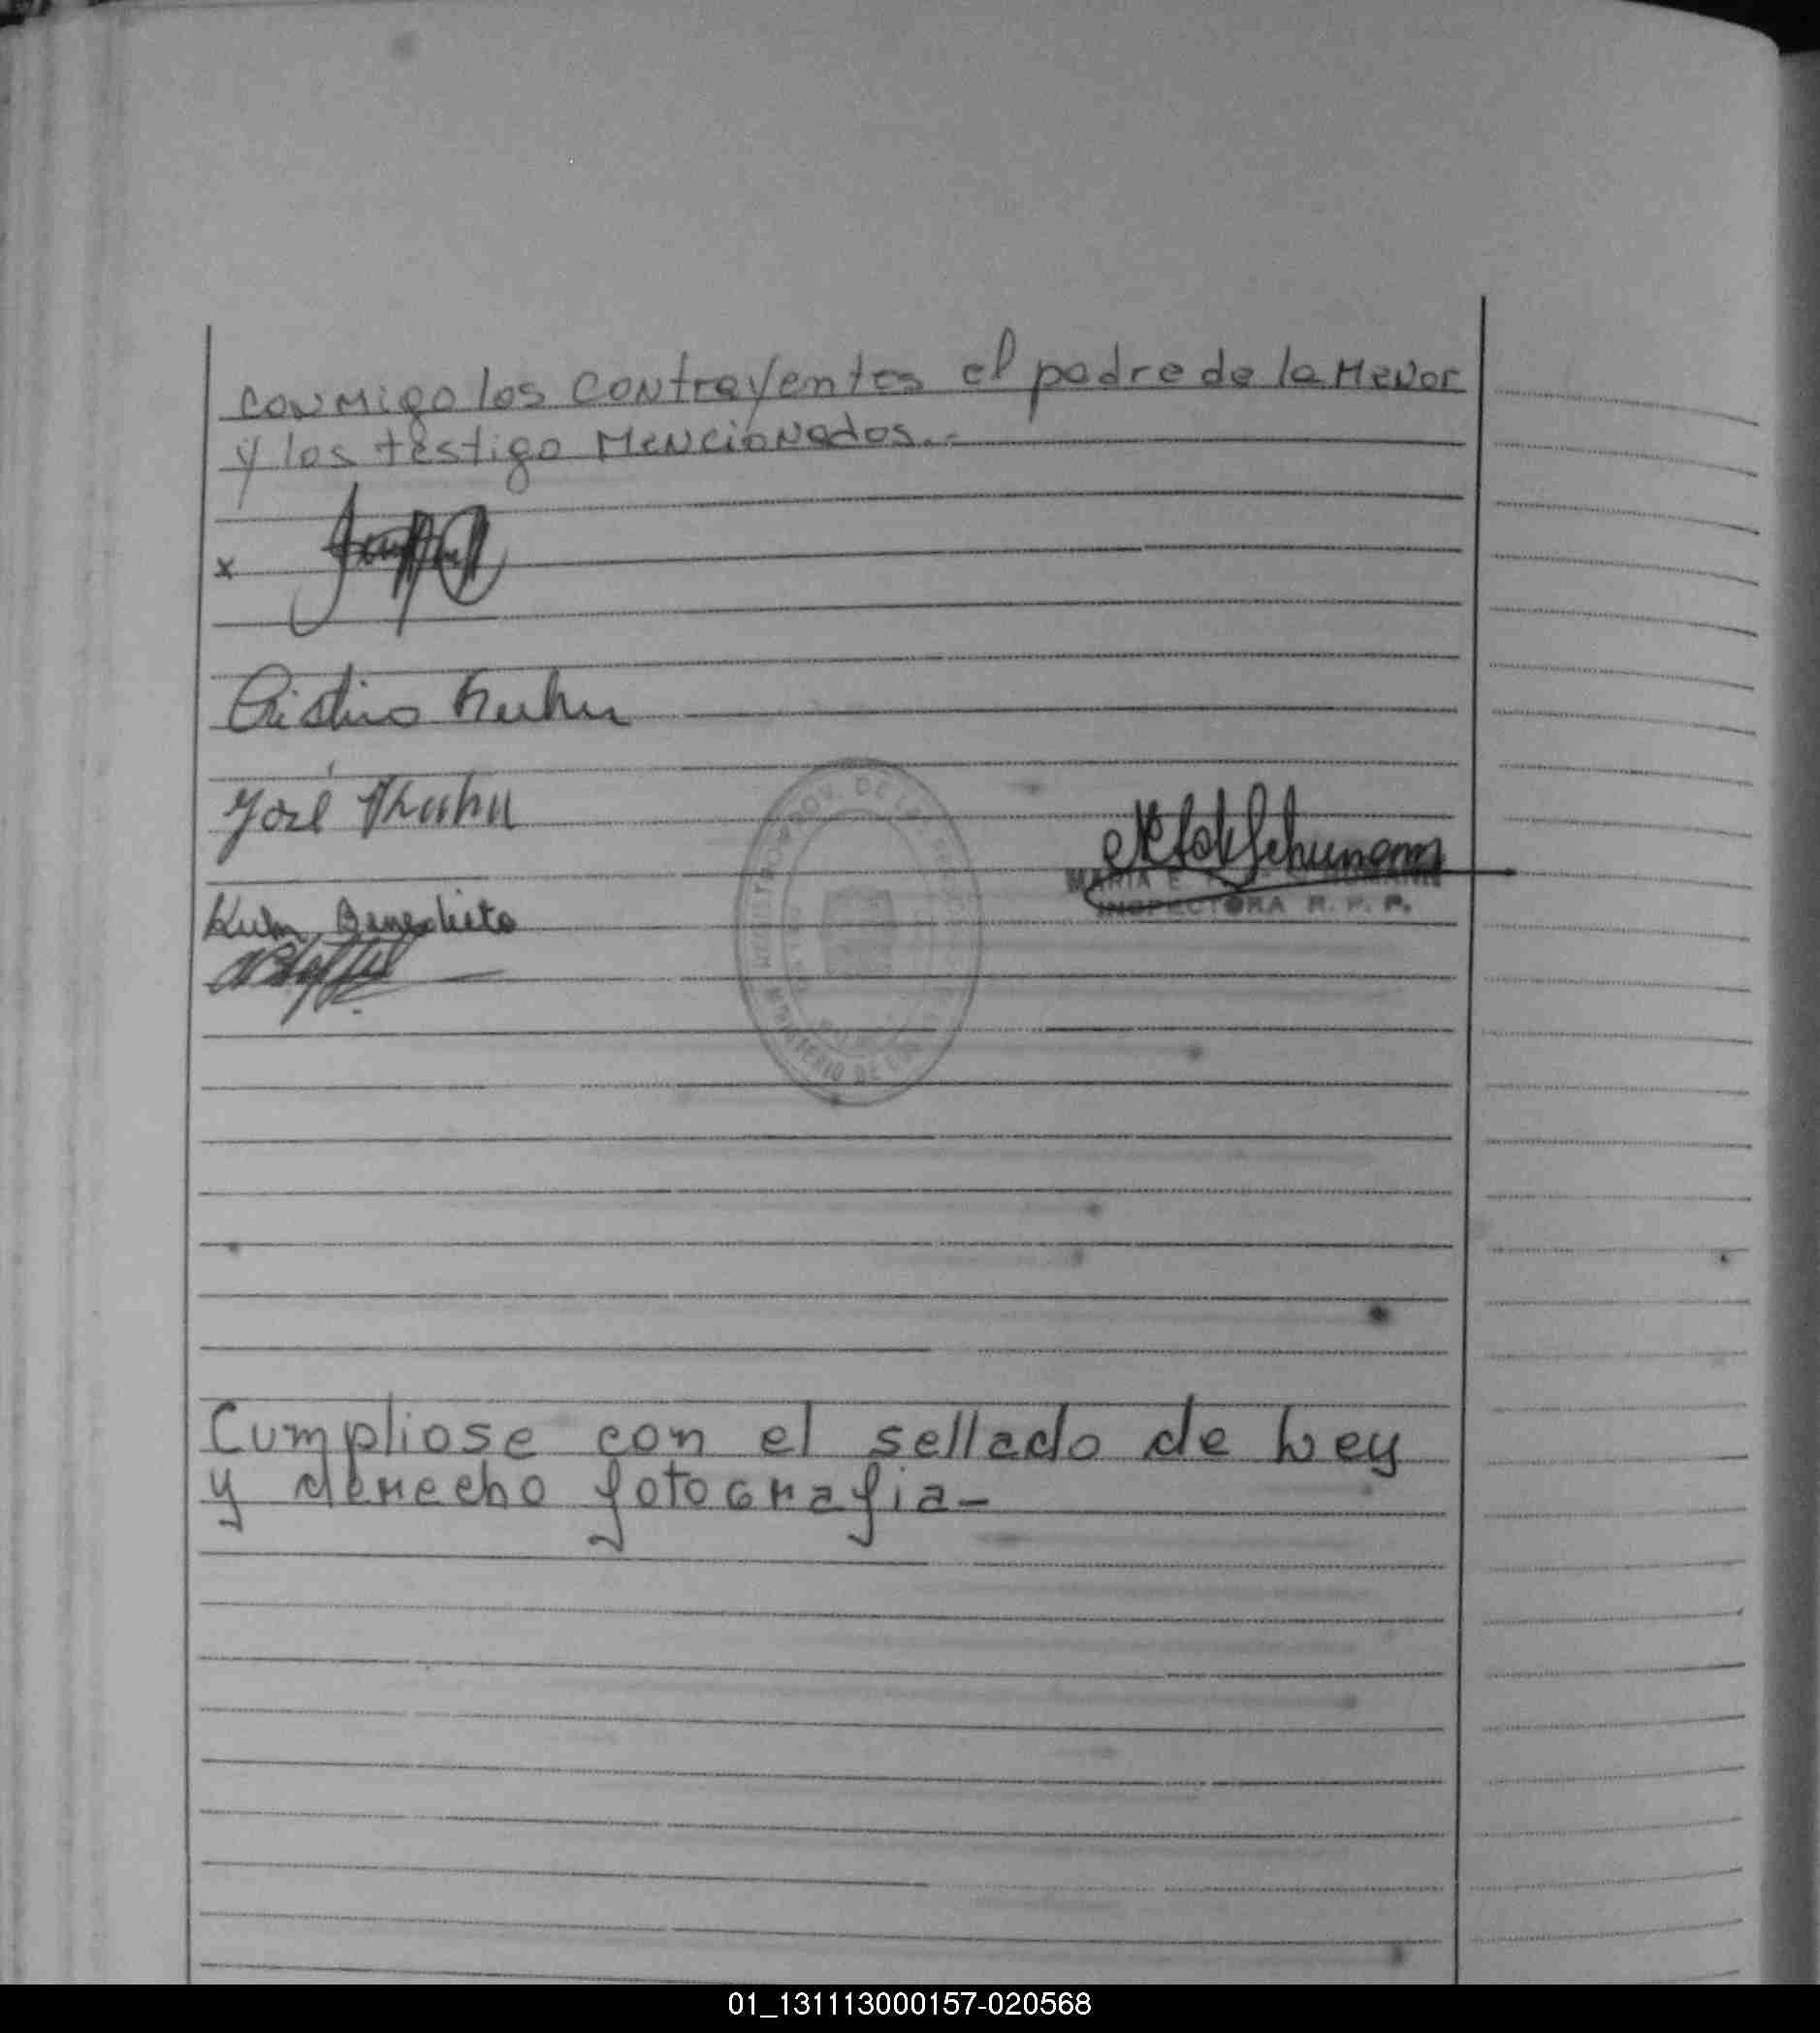 conmigo los contrayentes el padre de la Menor
y los testigo Mencionados.-
x
Cristina Kuhn
José Kuhn
MARIA E. SCHUMANN
INSPECTORA R. P. P.
Kuhn Benedicto
REGISTRO PROV. DE LAS PERSONAS
MINISTERIO DE
Cumpliose con el sellado de Ley
y derecho fotografia-
01_131113000157-020568